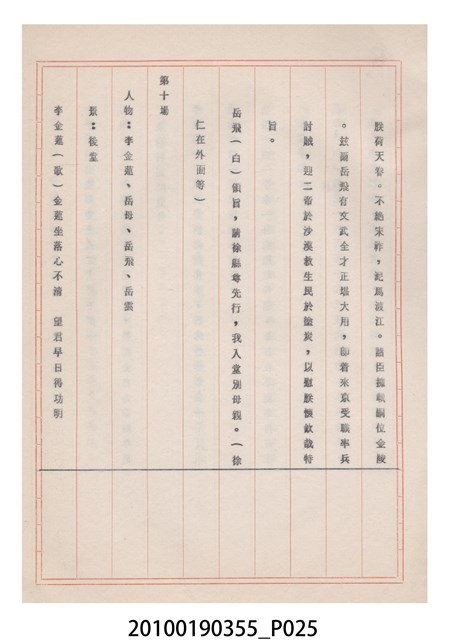 朕荷天眷。不絶宋祚，泥馬渡江。諸臣擁戴嗣位金陵
。玆爾岳飛有文武全才正堪大用，卽着來京受職率兵
討賊，迎二帝於沙漠救生民於塗炭，以慰朕懷欽哉特
旨。
岳飛（白）領旨，請徐縣尊先行，我入堂別母親。（徐
仁在外面等）
第十場
人物：李金蓮、岳母、岳飛、岳雲
景：後堂
李金蓮（歌）金蓮坐落心不淸　望君早日得功明
20100190355_P025